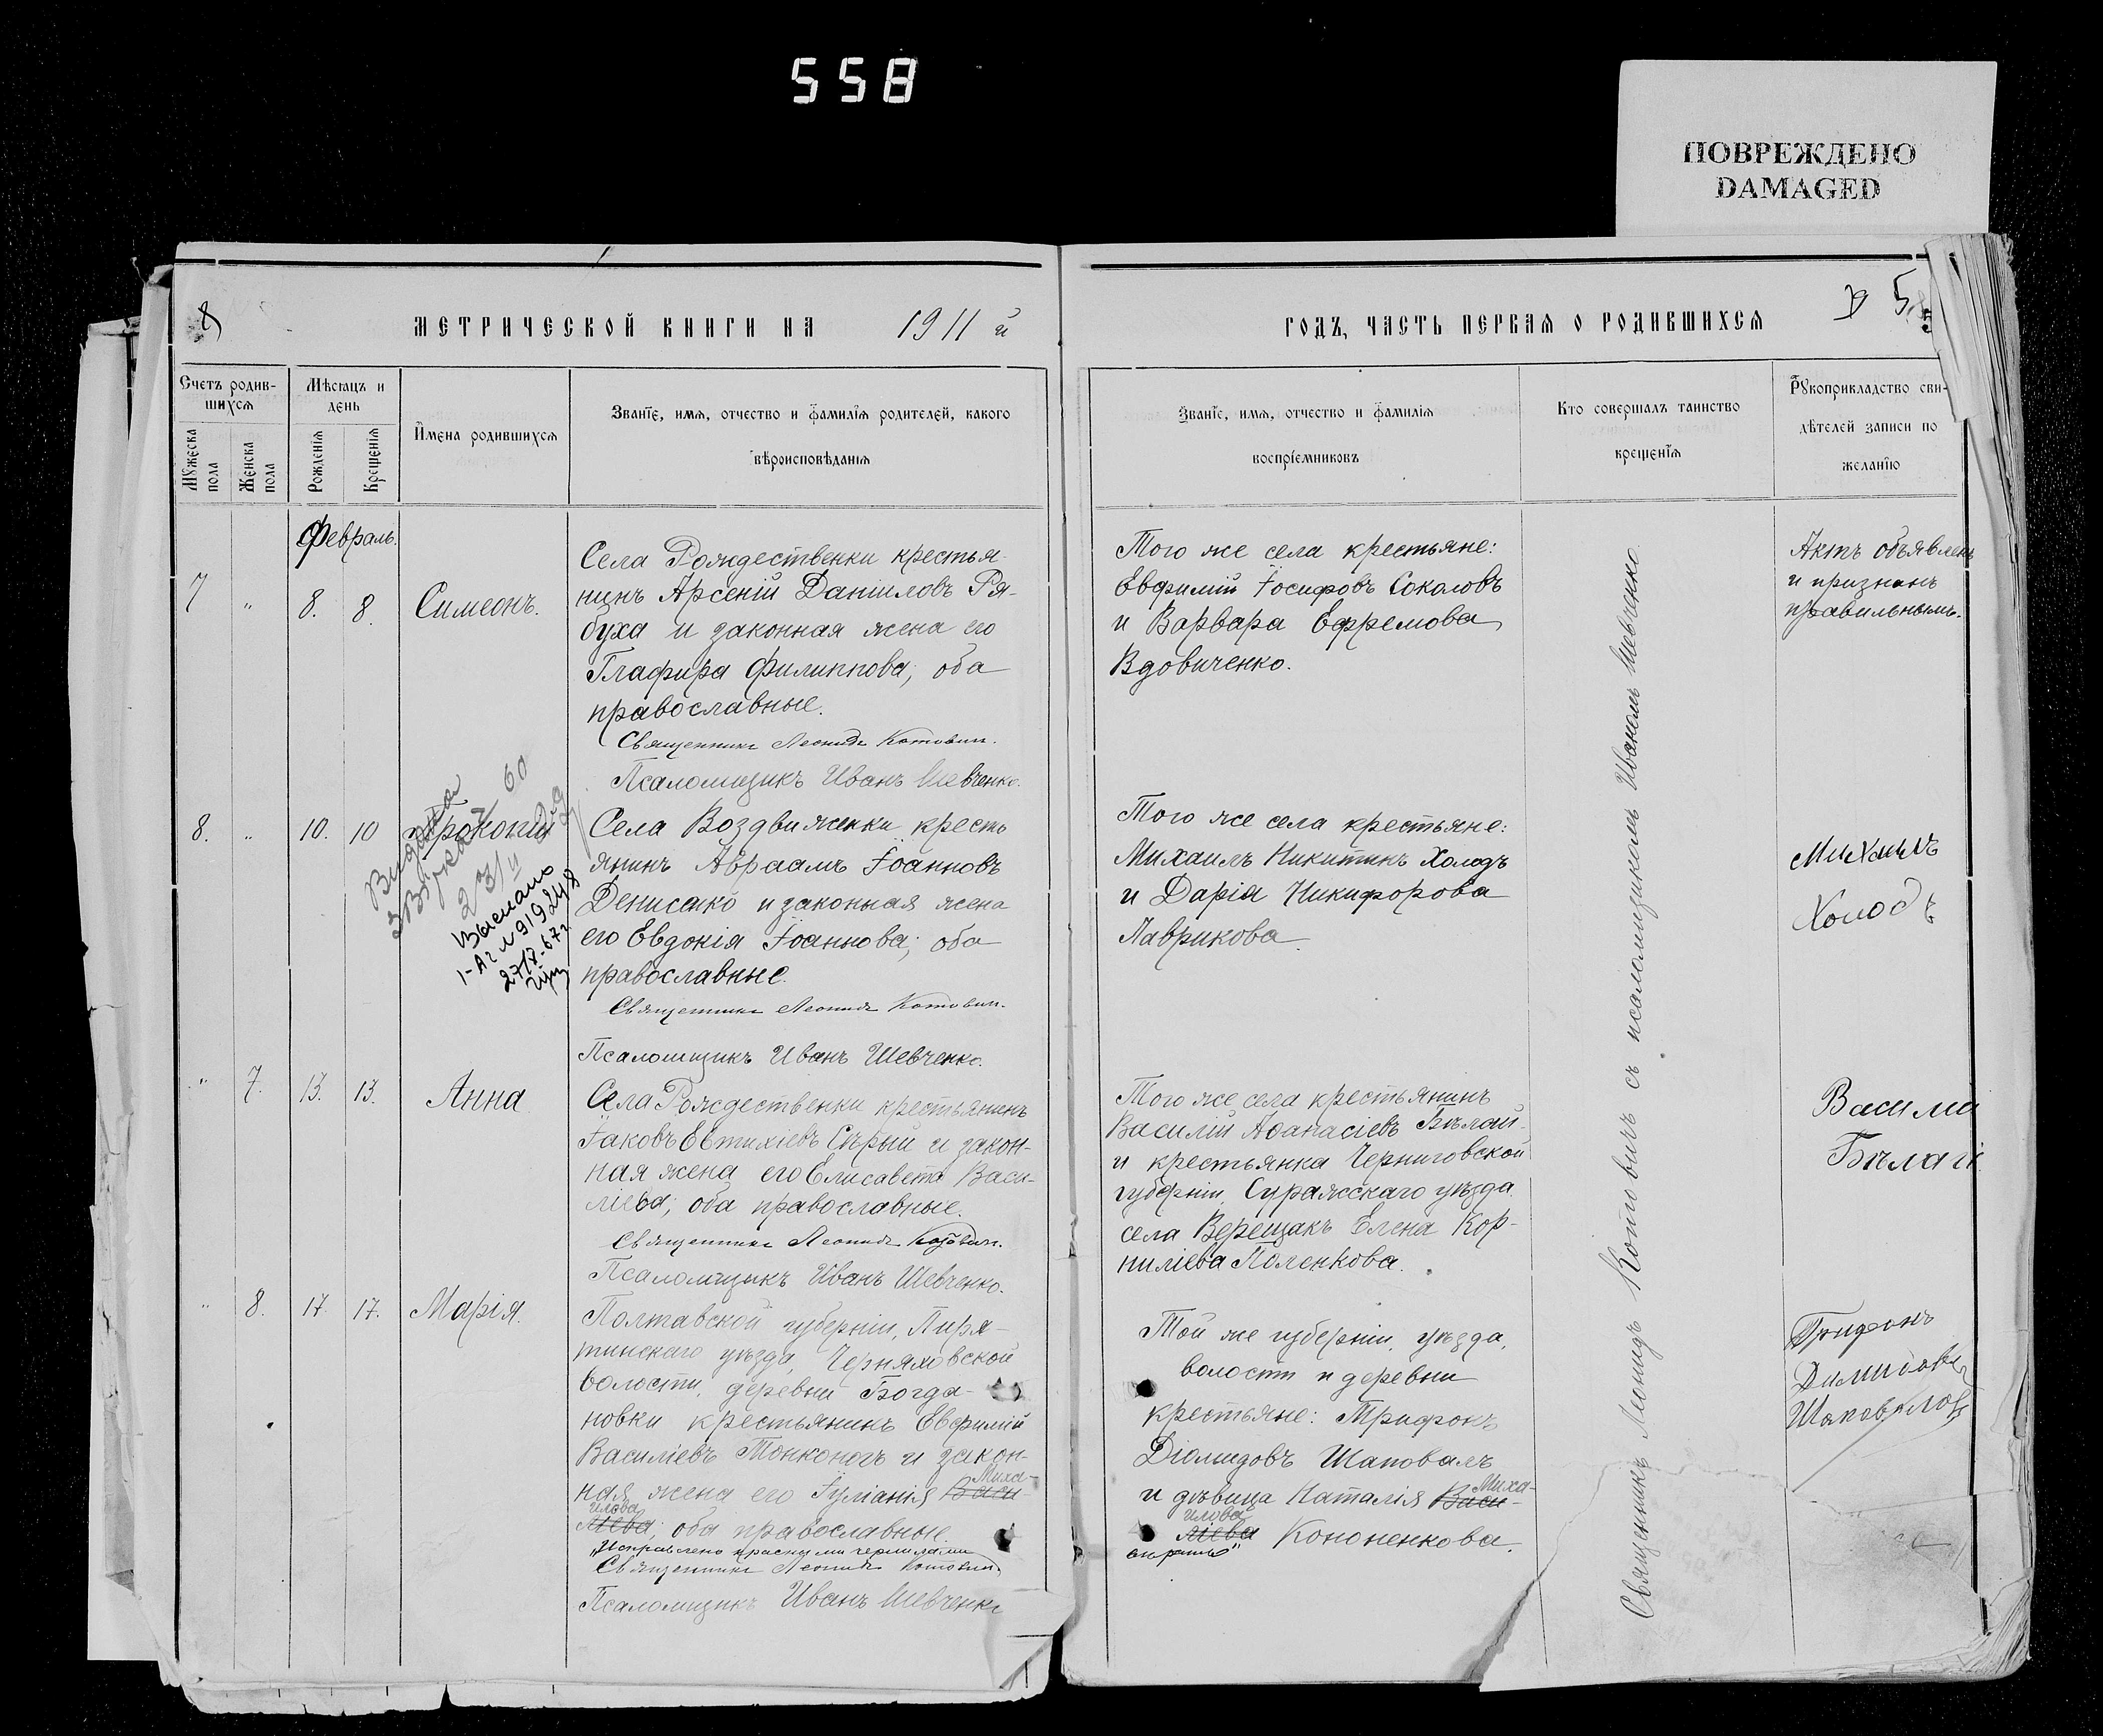 558
ПОВРЕЖДЕНО
DAMAGED
8
МЕТРИЧЕСКОЙ КНИГИ НА 1911 й
Счетъ родив-
шихся
Мужеска
пола
Женска
пола
Мѣсяцъ и
день
Рожденія
Крещенія
Имена родившихся
Званіе, имя, отчество и фамилія родителей, какого
вѣроисповѣданія
Февраль.
7 " 8. 8. Симеонъ.
Села Рождественки крестья-
нинъ Арсеній Даніиловъ Ря-
буха и законная жена его
Глафира Филиппова; оба
православные.
Священникъ Леонидъ Котовичъ.
Псаломщикъ Иванъ Шевченко.
8. " 10. 10 Прокопій
Выслано
Села Воздвиженки кресть
янинъ Авраамъ Іоанновъ
Денисенко и законная жена
его Евдокія Іоаннова; оба
православные.
Священникъ Леонидъ Котовичъ.
Псаломщикъ Иванъ Шевченко.
" 7. 13. 13. Анна
Села Рождественки крестьянинъ
Іаковъ Евтихіевъ Сѣрый и закон-
ная жена его Елисавета Васи-
ліева; оба православные.
Священникъ Леонидъ Котовичъ.
Псаломщикъ Иванъ Шевченко.
" 8. 17. 17. Марія.
Полтавской губерніи, Пиря-
тинскаго уѣзда, Черняховской
волости, деревни Богда-
новки крестьянинъ Евфимій
Василіевъ Тонконогъ и закон-
Миха-
ная жена его Іуліанія Васи-
илова
ліева; оба православные.
"Исправлено красными чернилами
Священникъ Леонидъ Котовичъ.
Псаломщикъ Иванъ Шевченко
5
ГОДЪ, ЧАСТЬ ПЕРВАЯ О РОДИВШИХСЯ
Званіе, имя, отчество и фамилія
воспріемниковъ
Кто совершалъ таинство
крещенія
Рукоприкладство сви-
дѣтелей записи по
желанію
Того же села крестьяне:
Евфимій Іосифовъ Соколовъ
и Варвара Ефремова
Вдовиченко.
Актъ объявленъ
и признанъ
правильнымъ.
Того же села крестьяне:
Михаилъ Никитинъ Холодъ
и Дарія Никифорова
Лаврикова.
Михаилъ
Холодъ
Того же села крестьянинъ
Василій Аѳанасіевъ Бѣлай
и крестьянка Черниговской
губерніи, Суражскаго уѣзда
села Верещакъ Елена Кор-
ниліева Поленкова.
Василій
Бѣлай
Той же губерніи, уѣзда,
волости и деревни
крестьяне: Трифонъ
Діомидовъ Шаповалъ
Миха-
и дѣвица Наталія Васи-
илова
ліева Кононенкова.
Трифонъ
Шаповалов
Священникъ Леонидъ Котовичъ съ псаломщикомъ Иваномъ Шевченко.